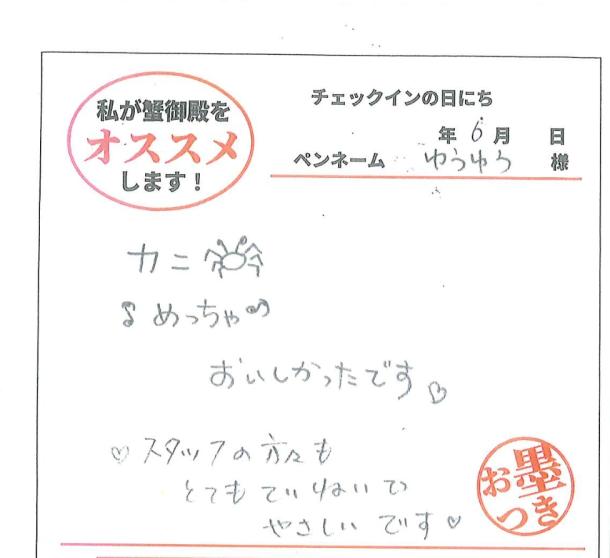 私が蟹御殿を
オススメ
します！
チェックインの日にち
年 6月 日
ペンネーム ゆうゆう 様
カニ
♪めっちゃ♪
おいしかったです♡
♡スタッフの方々も
とてもていねいで
やさしいです♡
お墨
つき